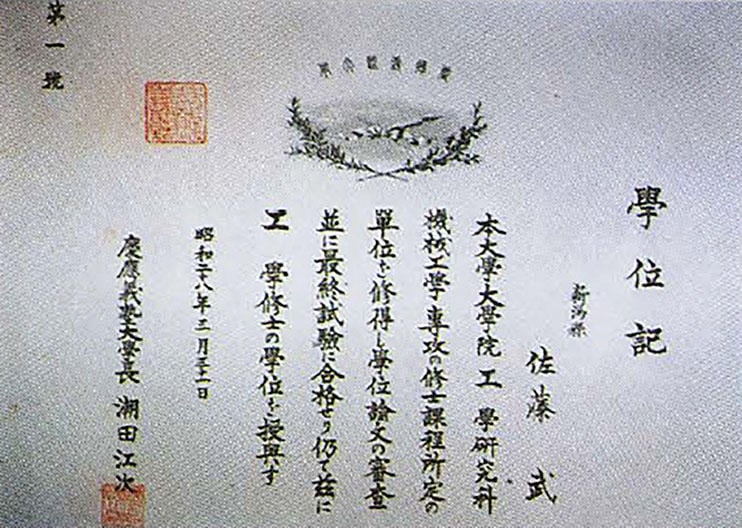 學位記
新潟県
佐藤武
本大學大學院工學研究科
機械工學専攻の修士課程所定の
單位を修得し學位論文の審査
並に最終試験に合格せり仍て茲に
工學修士の學位を授與す
昭和二八年三月三一日
慶應義塾大學長 潮田江次
第一號